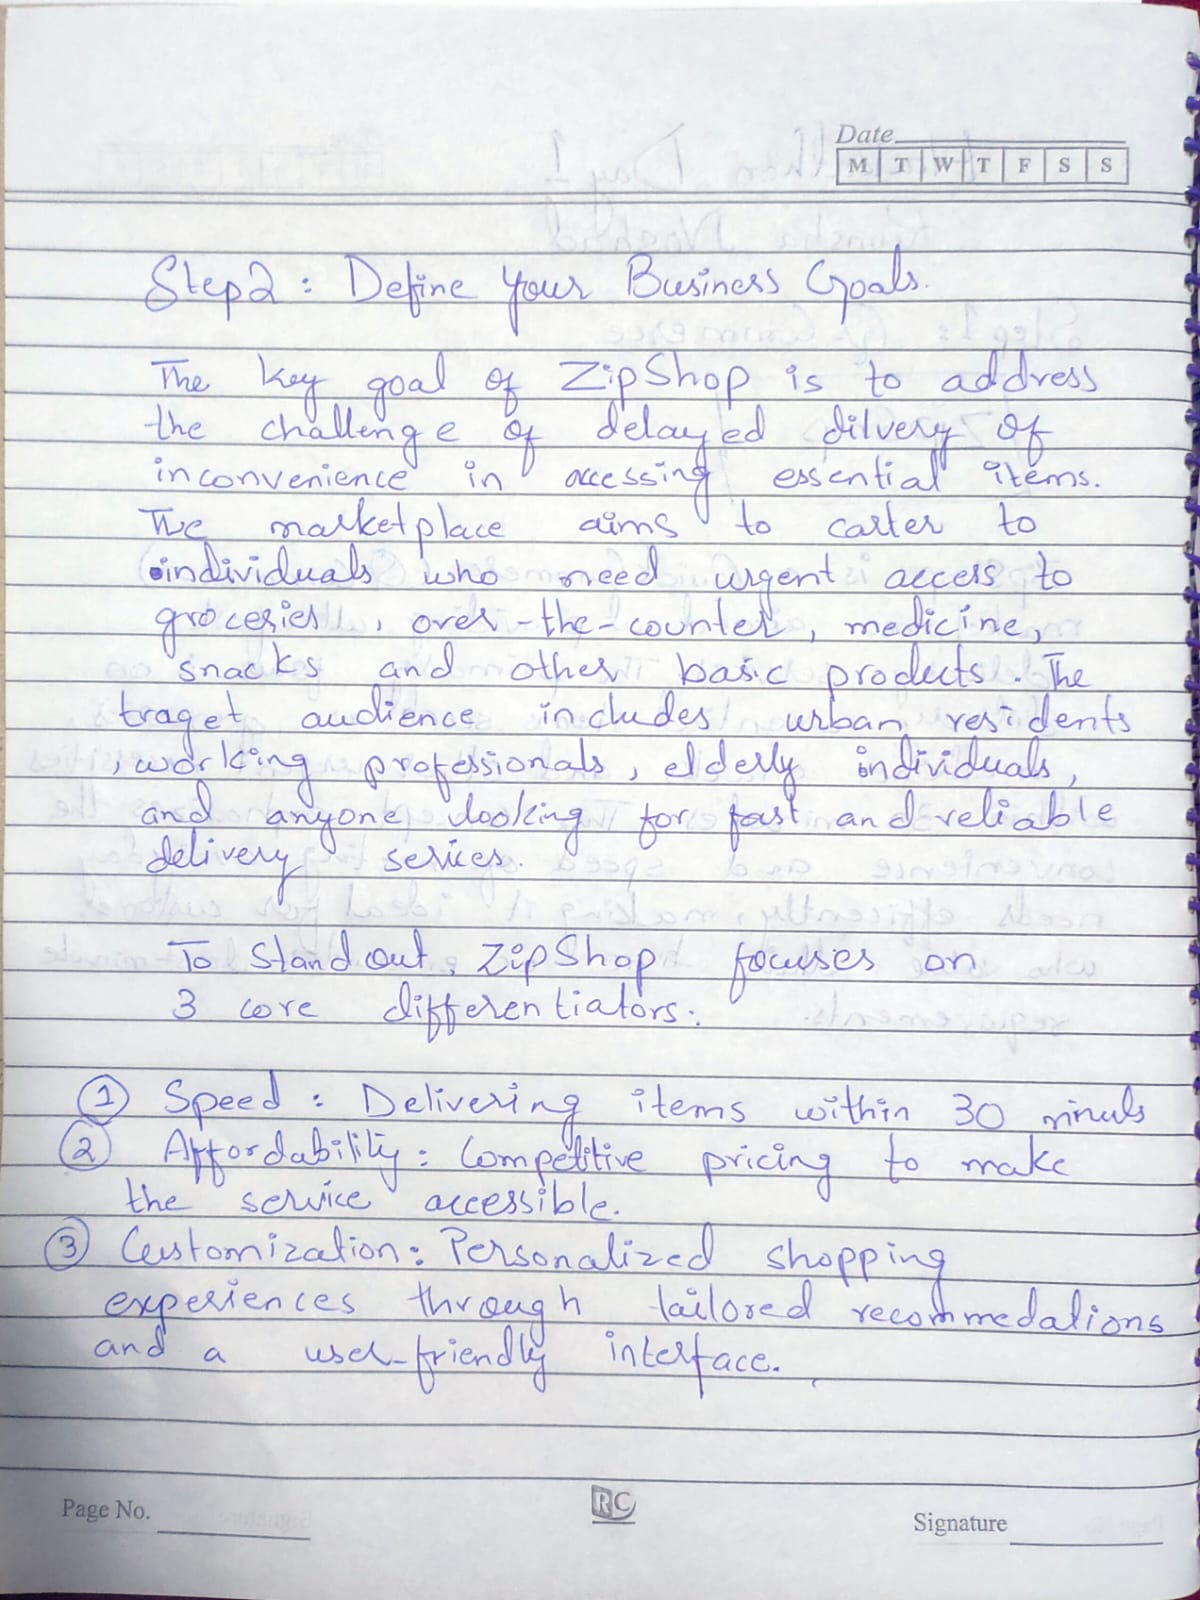 Date
M T W T F S S
Step2: Define Your Business Goals.
The key goal of ZipShop is to address
the challenge of delayed dilvery of
inconvenience in accessing essential items.
The marketplace aims to carter to
individuals who need urgent access to
groceries, over-the-counter, medicine,
snacks and other basic products. The
traget audience includes urban residents
, working professionals, elderly individuals,
and anyone looking for fast and reliable
delivery serices.
To Stand out, ZipShop focuses on
3 core differentiators:
① Speed: Delivering items within 30 minuts
② Affordability: Competitive pricing to make
the service accessible.
③ Customization: Personalized shopping
experiences through tailored recommedations
and a user-friendly interface.
Page No.
RC
Signature